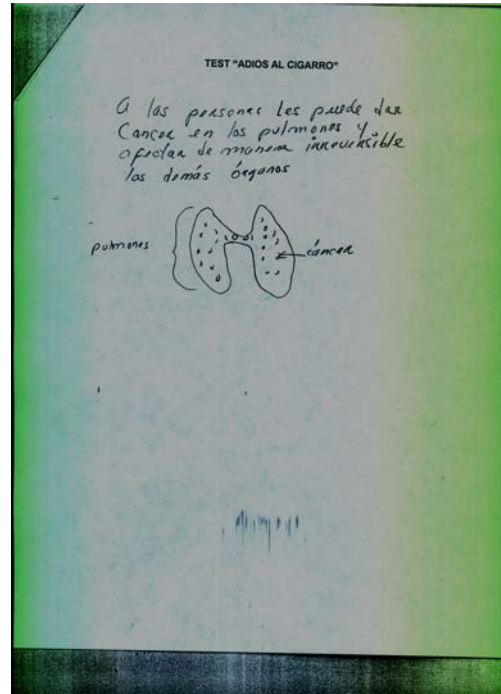 TEST "ADIOS AL CIGARRO"
A las personas les puede dar
Cancer en los pulmones y
afectar de manera irreversible
los demás órganos
pulmones
cáncer